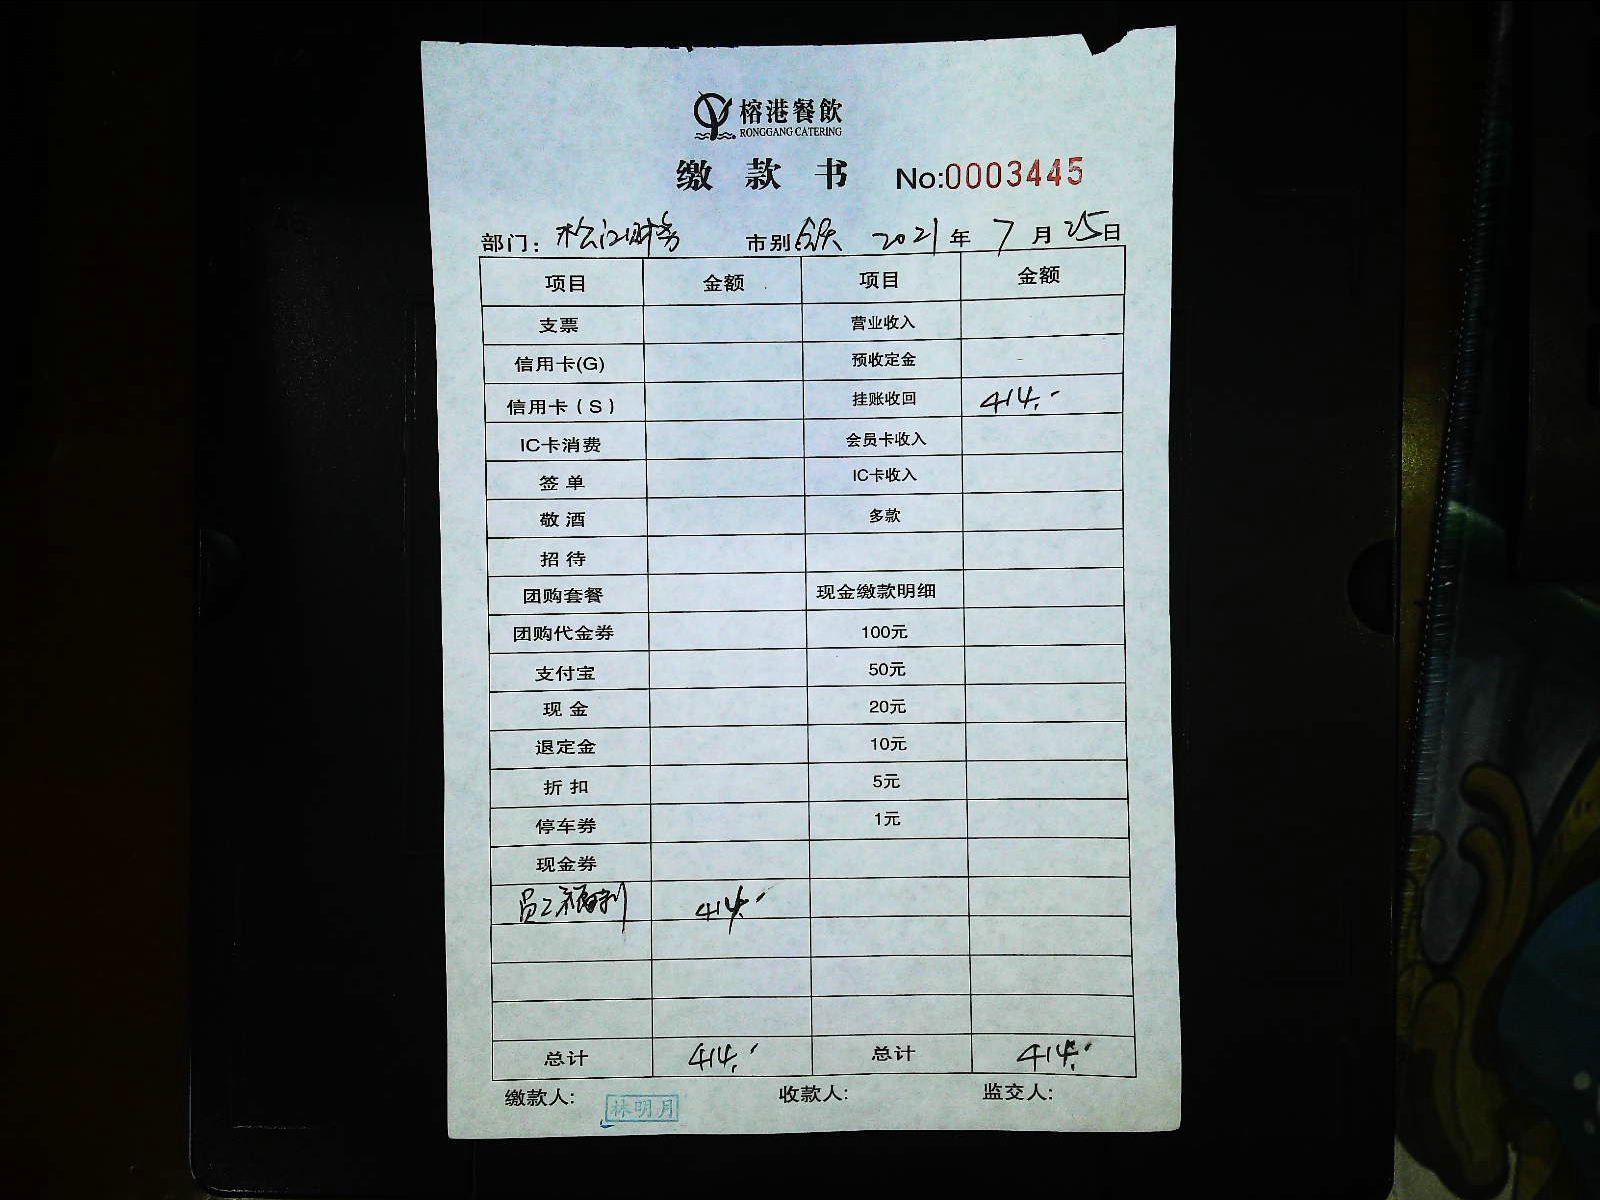 榕港餐飲
RONGGANG CATERING
缴 款 书 No:0003445
部门: 松江财务 市别: 2021 年 7 月 25 日
项目 金额 项目 金额
支票 营业收入
信用卡(G) 预收定金
信用卡(S) 挂账收回 414.-
IC卡消费 会员卡收入
签 单 IC卡收入
敬 酒 多款
招 待
团购套餐 现金缴款明细
团购代金券 100元
支付宝 50元
现 金 20元
退定金 10元
折 扣 5元
停车券 1元
现金券
员工福利 414.-
总计 414.- 总计 414.-
缴款人: 林明月 收款人: 监交人: